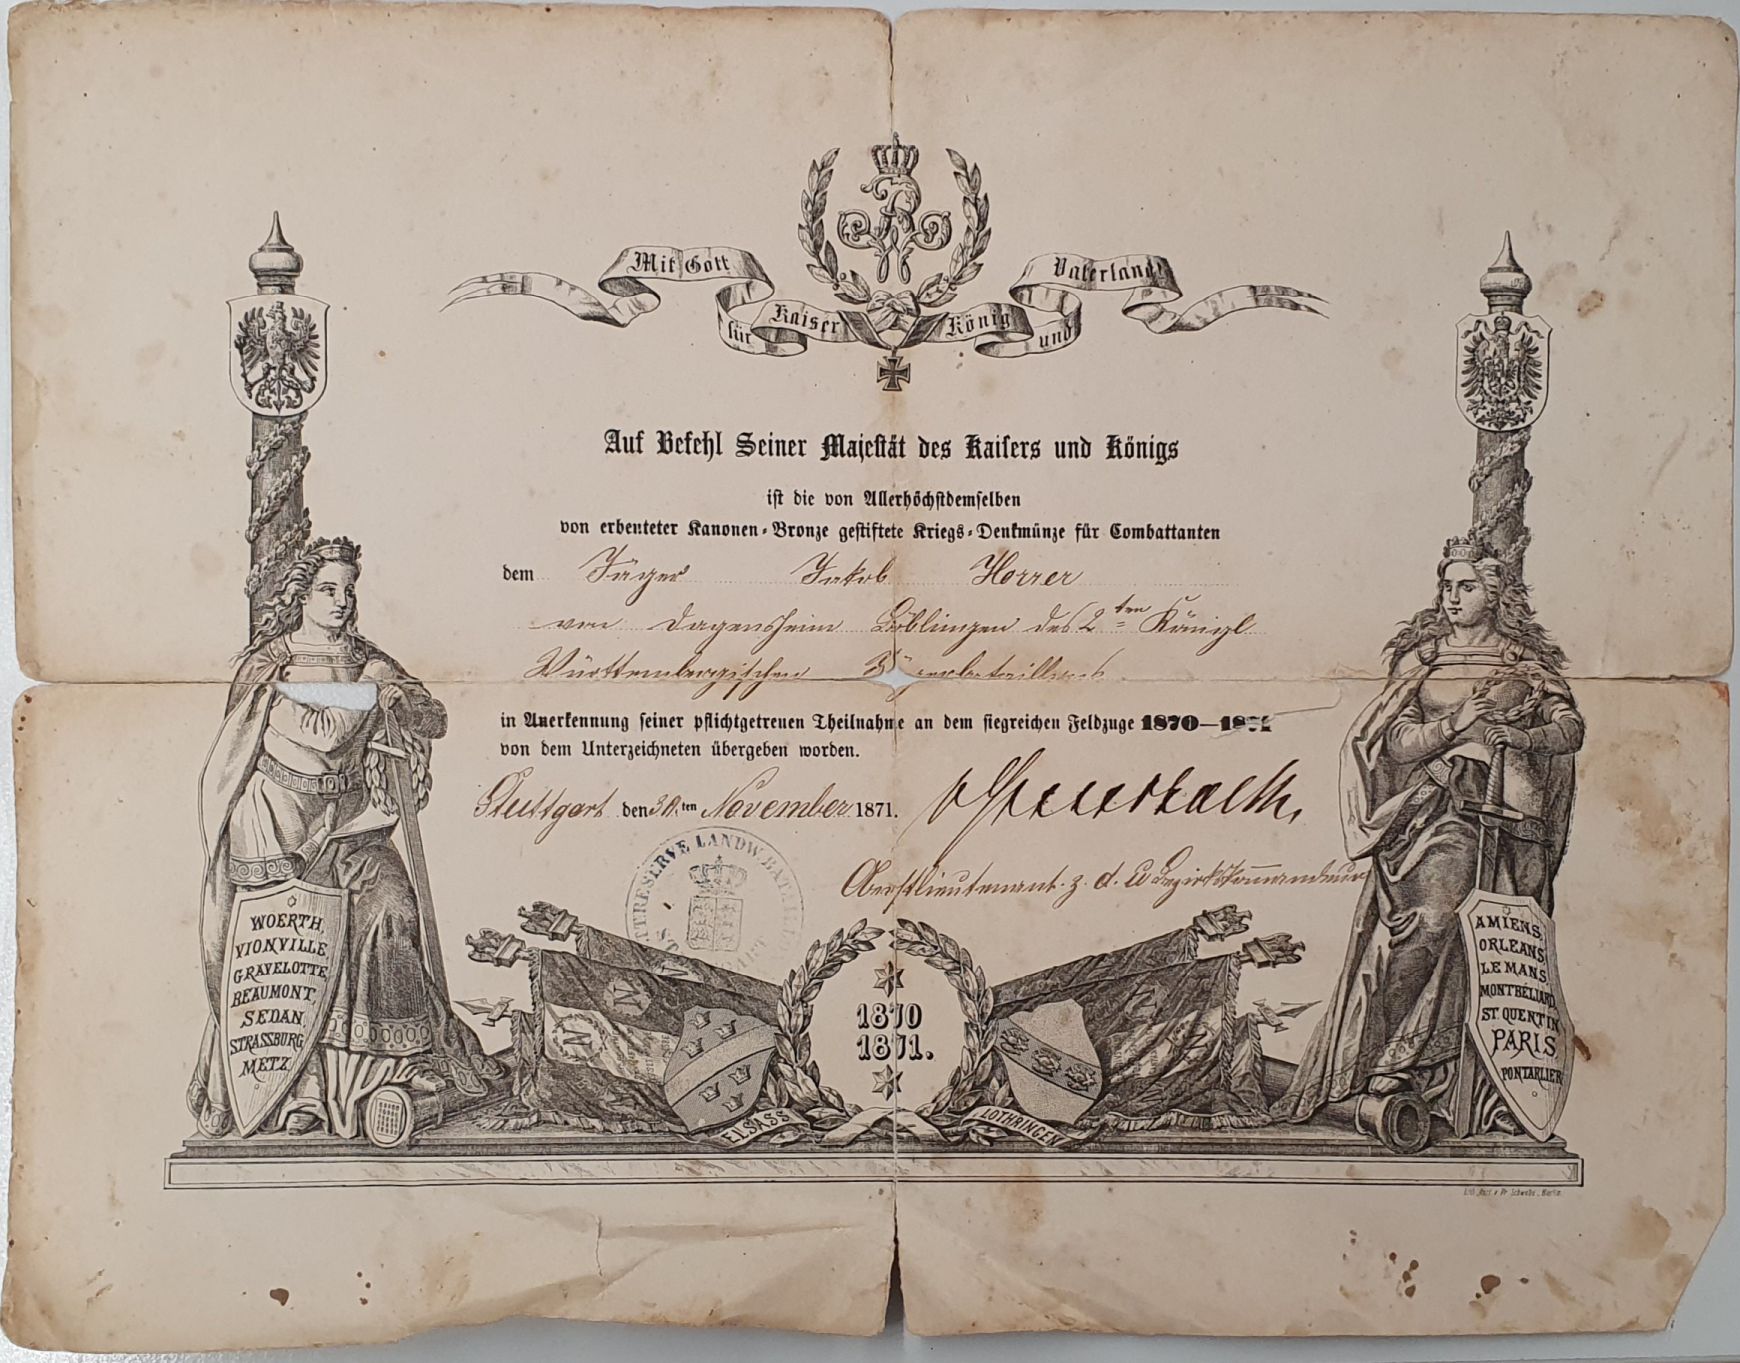 Mit Gott
für Kaiser König und
Vaterland
Auf Befehl Seiner Majestät des Kaisers und Königs
ist die von Allerhöchstdemselben
von erbeuteter Kanonen-Bronze gestiftete Kriegs-Denkmünze für Combattanten
dem Jäger Jakob Horrer
von Dagersheim Böblingen des 2ten Königl
Württembergischen Jägerbataillons
in Anerkennung seiner pflichtgetreuen Theilnahme an dem siegreichen Feldzuge 1870—1871
von dem Unterzeichneten übergeben worden.
Stuttgart den 30ten November 1871.
Oberstlieutenant z. d. u Bezirkskommandeur
RESERVE LANDW. BATAILL
WOERTH,
VIONVILLE,
GRAVELOTTE,
BEAUMONT,
SEDAN,
STRASSBURG,
METZ.
N
N
1870
1871.
ELSASS
LOTHRINGEN
AMIENS,
ORLEANS,
LE MANS,
MONTBÉLIARD,
ST. QUENTIN
PARIS,
PONTARLIER